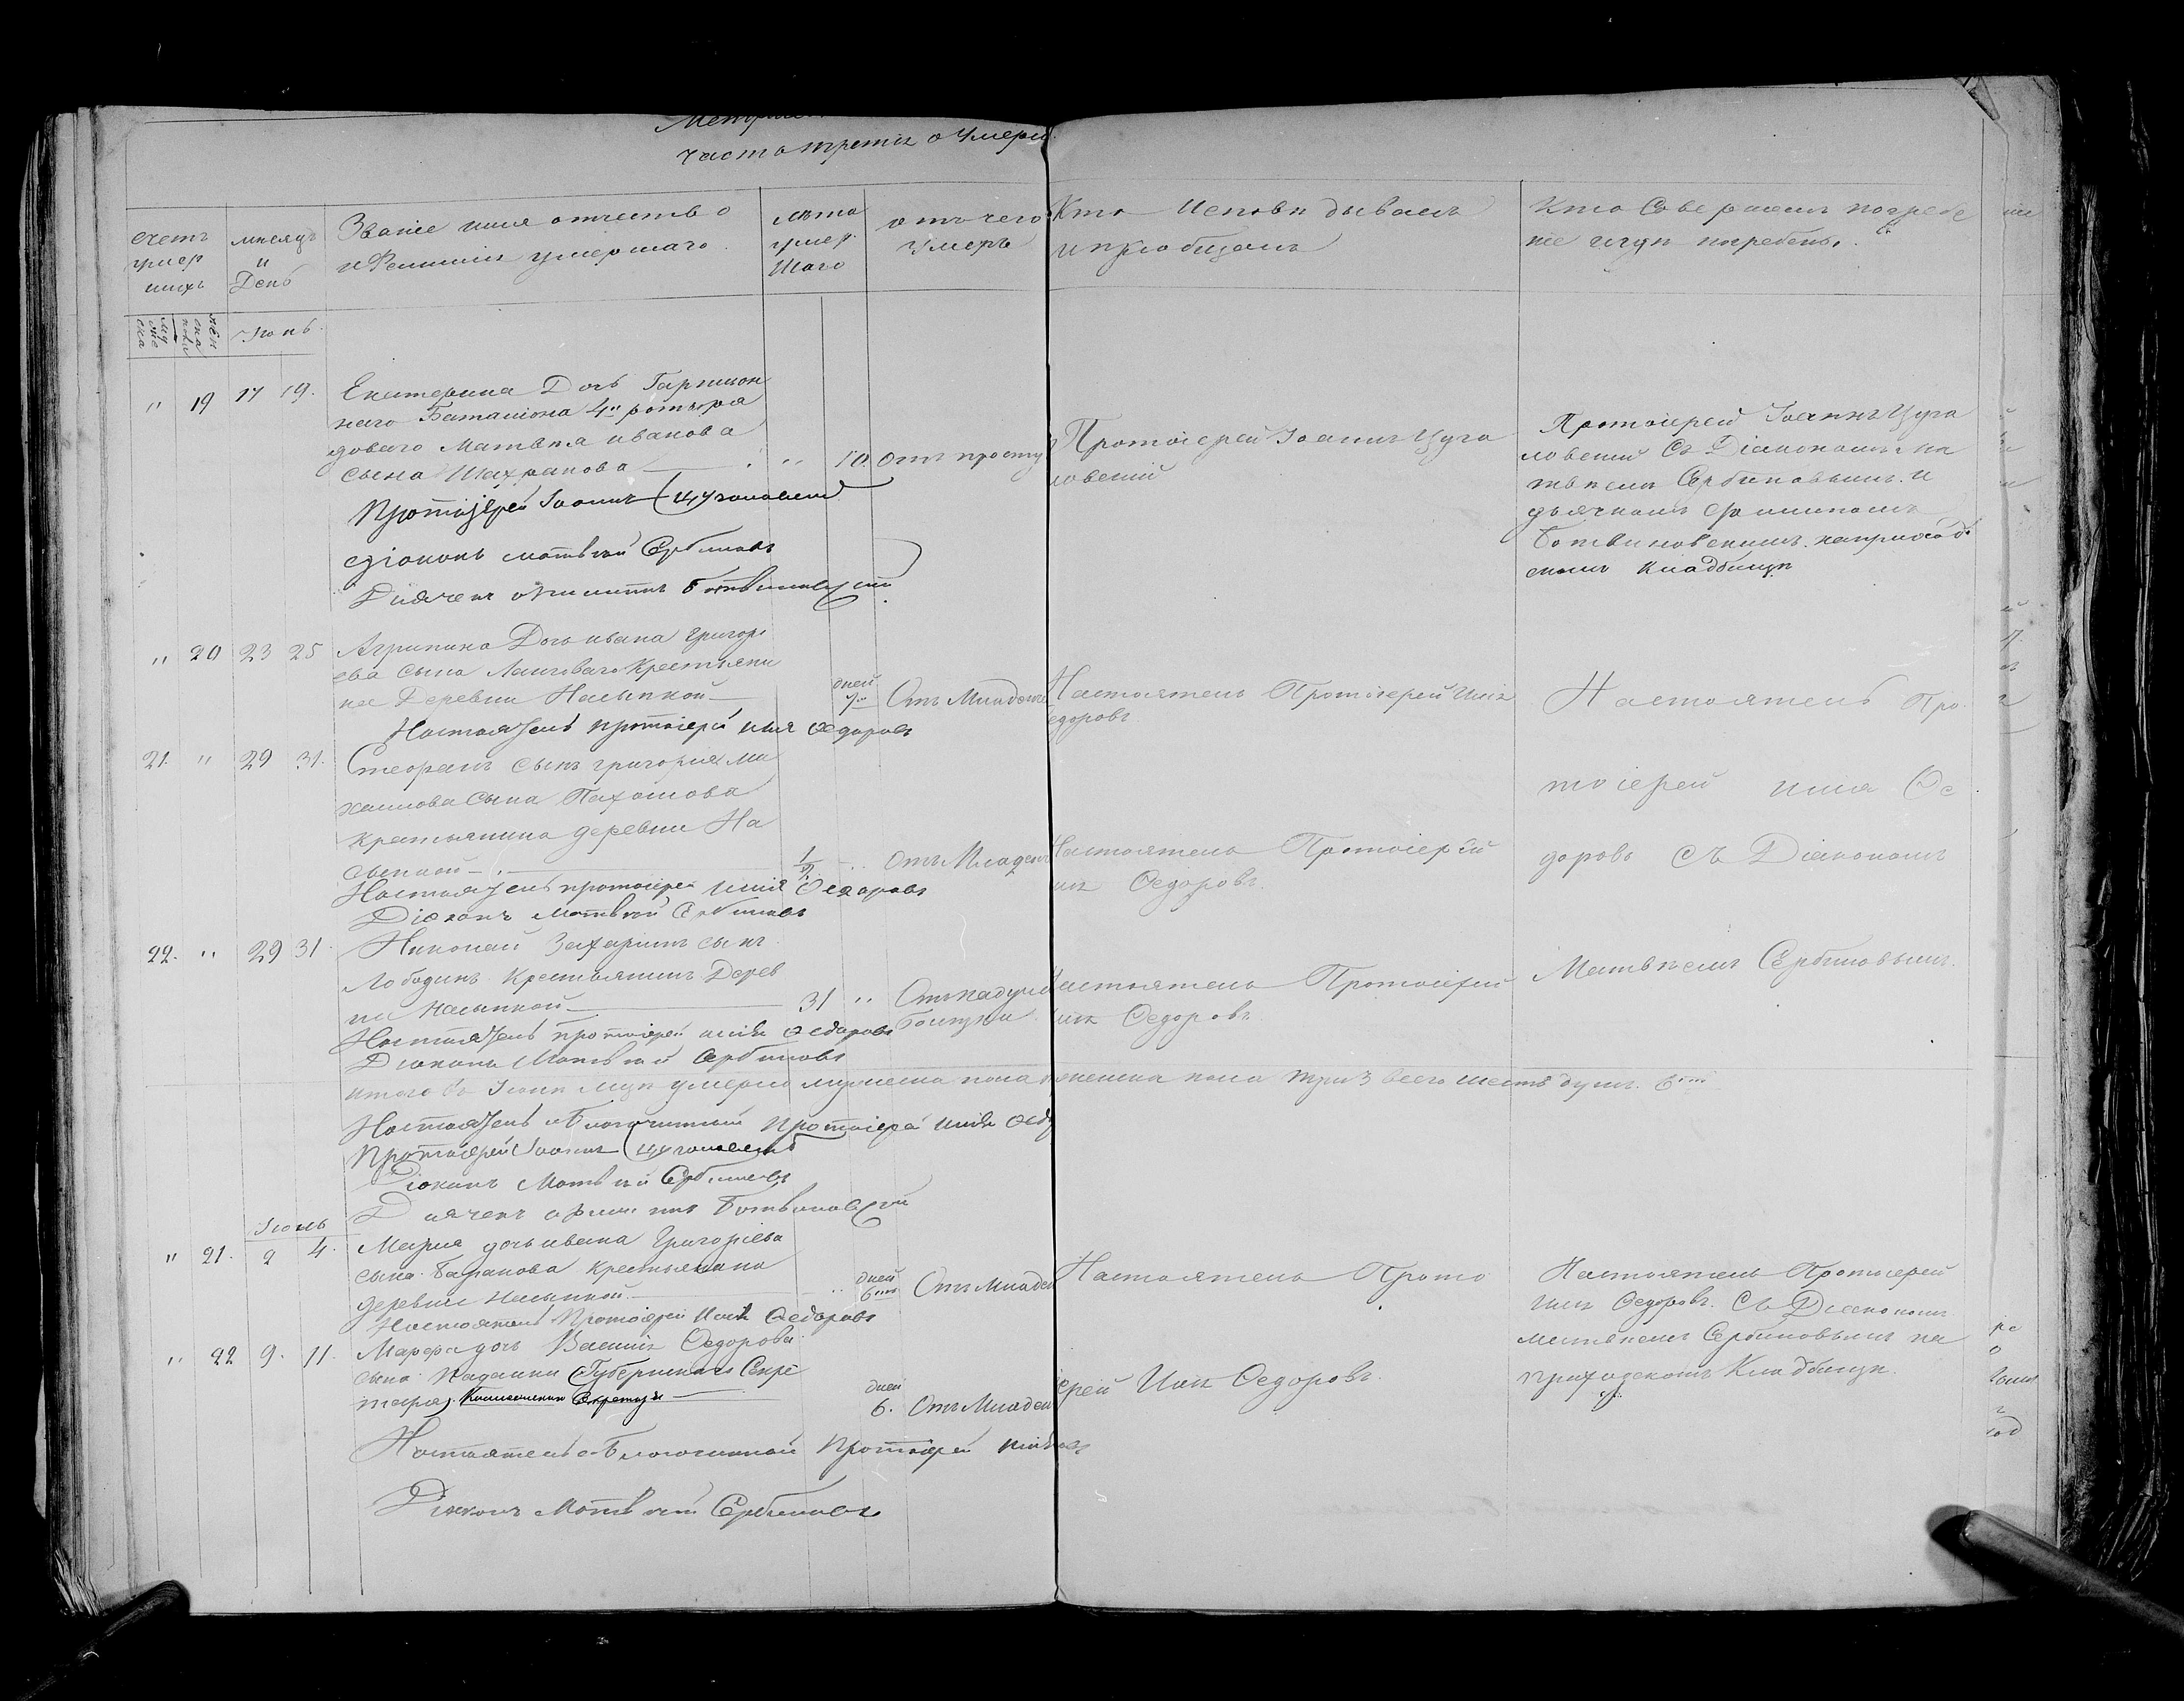 часть третія о Умерш
счетъ умер шихъ
мѣсяцъ и День
Званіе имя отчество
и Фамилія умершаго
лѣта умер шаго
отъ чего умеръ
Кто Исповѣдывалъ
и пріобщалъ
Кто Совершалъ погребе
ніе и гдѣ погребены
муж ска
жен ска
Іюнь
" 19 17 19.
Екатерина Дочь Гарнизон
наго Баталіона 4й роты ря
доваго Матвѣя иванова
сына Шахранова " 10.
Отъ просту
Протоіерей Іоаннъ Цуга
ловскій
Протоіерей Іоаннъ Цуга
ловскій Съ Діакономъ Ма
твѣемъ Сербиновымъ и
дьячкомъ Филипомъ
Ботвиновскимъ. на приход
скомъ кладбищѣ
Протоіерей Іоаннъ Цуголовскій
Діаконъ Матвѣй Сербиновъ
Дьячекъ Филиппъ Ботвиновскій
" 20 23 25
Агрипина Дочь ивана григорі
ева сына Крестьяни
на Деревни Насыпкой
дней 7
Отъ Младен
Настоятель Протоіерей Илія
едоровъ
Настоятель Про
Настоятель протоіерей Илія Ѳедоровъ
21. " 29 31.
Стефанъ сынъ григорія Ми
хаилова Сына Пахомова
крестьянина деревни На
сыпкой ½ "
Отъ Младен
Настоятель Протоіерей
Илія Ѳедоровъ.
тоіерей Илія Ѳе
доровъ Съ Діакономъ
Настоятель протоіерей Илія Ѳедоровъ
Діаконъ Матвѣй Сербиновъ
22. " 29 31.
Николай Захаріинъ сынъ
Лободинъ Крестьянинъ Дерев
ни Насыпкой 31 "
Отъ падучей
болѣзни
Настоятель Протоіерей
Илія Ѳедоровъ
Матвѣемъ Сербиновымъ.
Настоятель протоіерей Илія Ѳедоровъ
Діаконъ Матвѣй Сербиновъ
итого въ Іюнѣ мцѣ умерло мужеска пола женска пола три 3 всего шесть душъ. 6
Настоятель и Благочинный Протоіерей Илія Ѳед
Протоіерей Іоаннъ Цуголовскій
Діаконъ Матвѣй Сербиновъ
Дьячекъ Филиппъ Ботвиновской
Іюль
" 21. 2 4.
Марія дочь ивана Григоріева
сына Баранова крестьянина
деревни Насыпкой
дней 6
Отъ Младен
Настоятель Прото
Настоятель Протоіерей
Илія Ѳедоровъ. Съ Діакономъ
Матвѣемъ Сербиновымъ на
приходскомъ Кладбищѣ.
Настоятель Протоіерей Илія Ѳедоровъ
" 22 9. 11.
Марфа дочь Василія Ѳедорова
сына Губернскаго Секре
таря
дней 6.
Отъ Младен
ерей Илія Ѳедоровъ.
Настоятель и Благочинной Протоіерей Илія
Діаконъ Матвѣй Сербиновъ